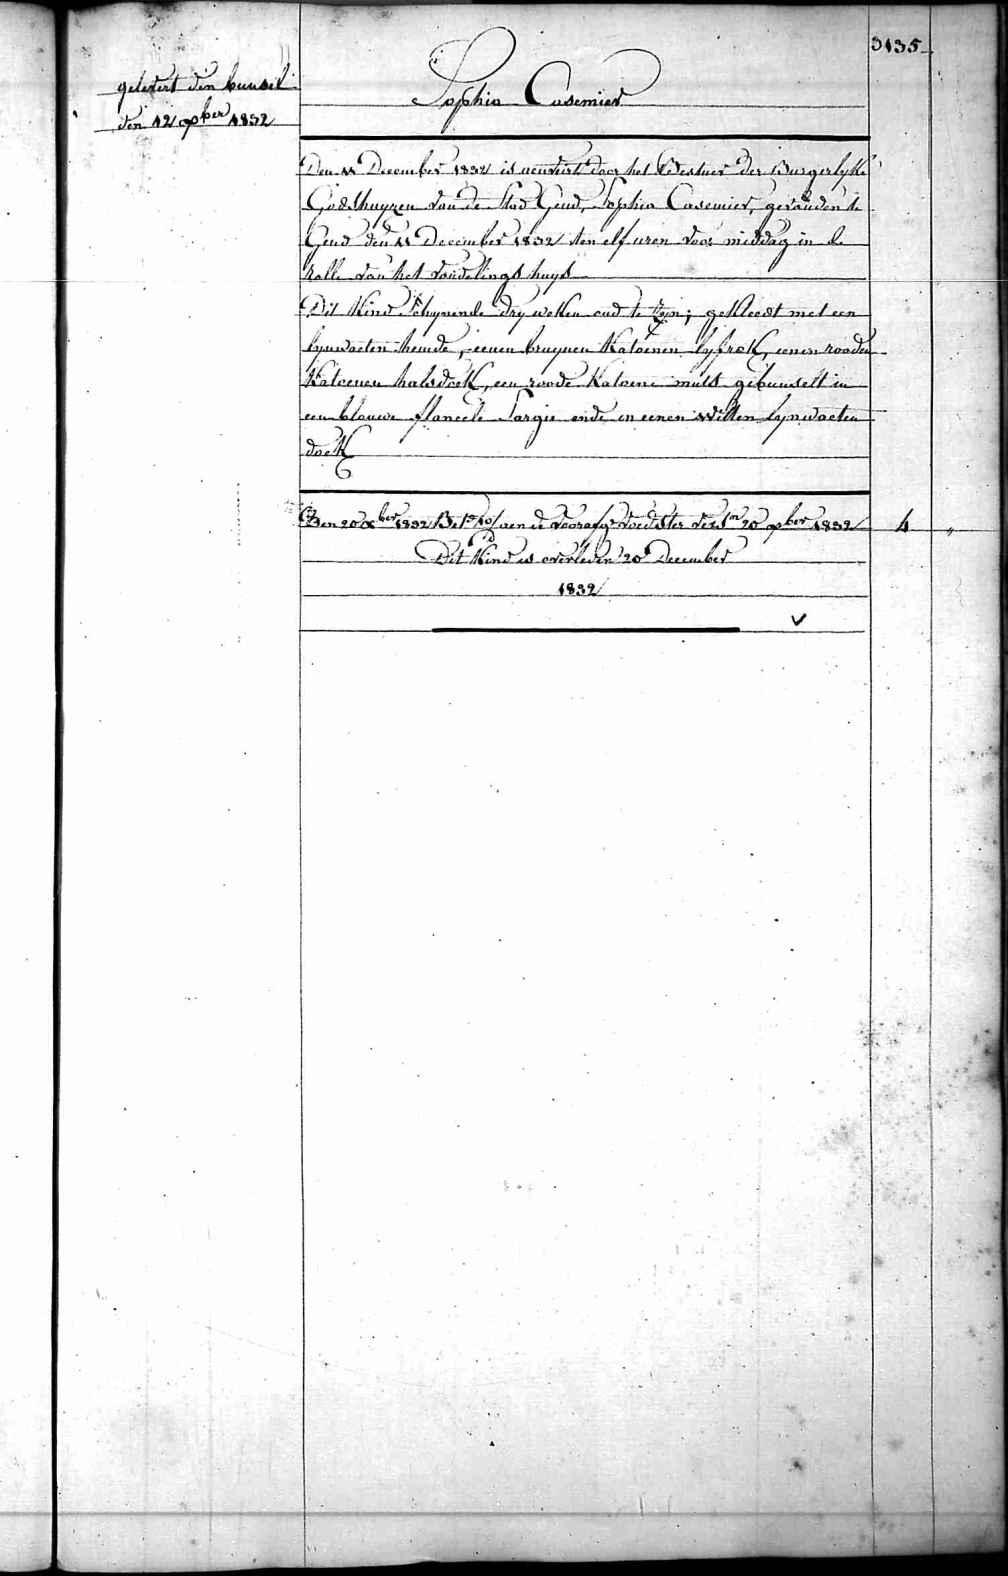 3135
gelevert den bunsel
den 12 xber 1832
Sophia Casemier
Den 11 December 1832 is aenveirt door het Bestuer der Burgerlyke
Godshuyzen van de Stad Gend, Sophia Casemier, gevonden te
Gend den 11 December 1832 ten elf uren voor middag in de
rolle van het vondelings huys
Dit Kind schynende dry weken oud te zyn; gekleedt met een
lynwaeten hemde, eenen bruynen Katoenen lyfrok, eenen rooden
Katoenen halsdoek, een roode Katoene muts gebunselt in
een blauwe flaneele Sargie ende in eenen witten lynwaeten
doek
Den 20 xber 1832 aen de voedster 20 xber 1832
4 "
Dit Kind is overleden 20 December
1832